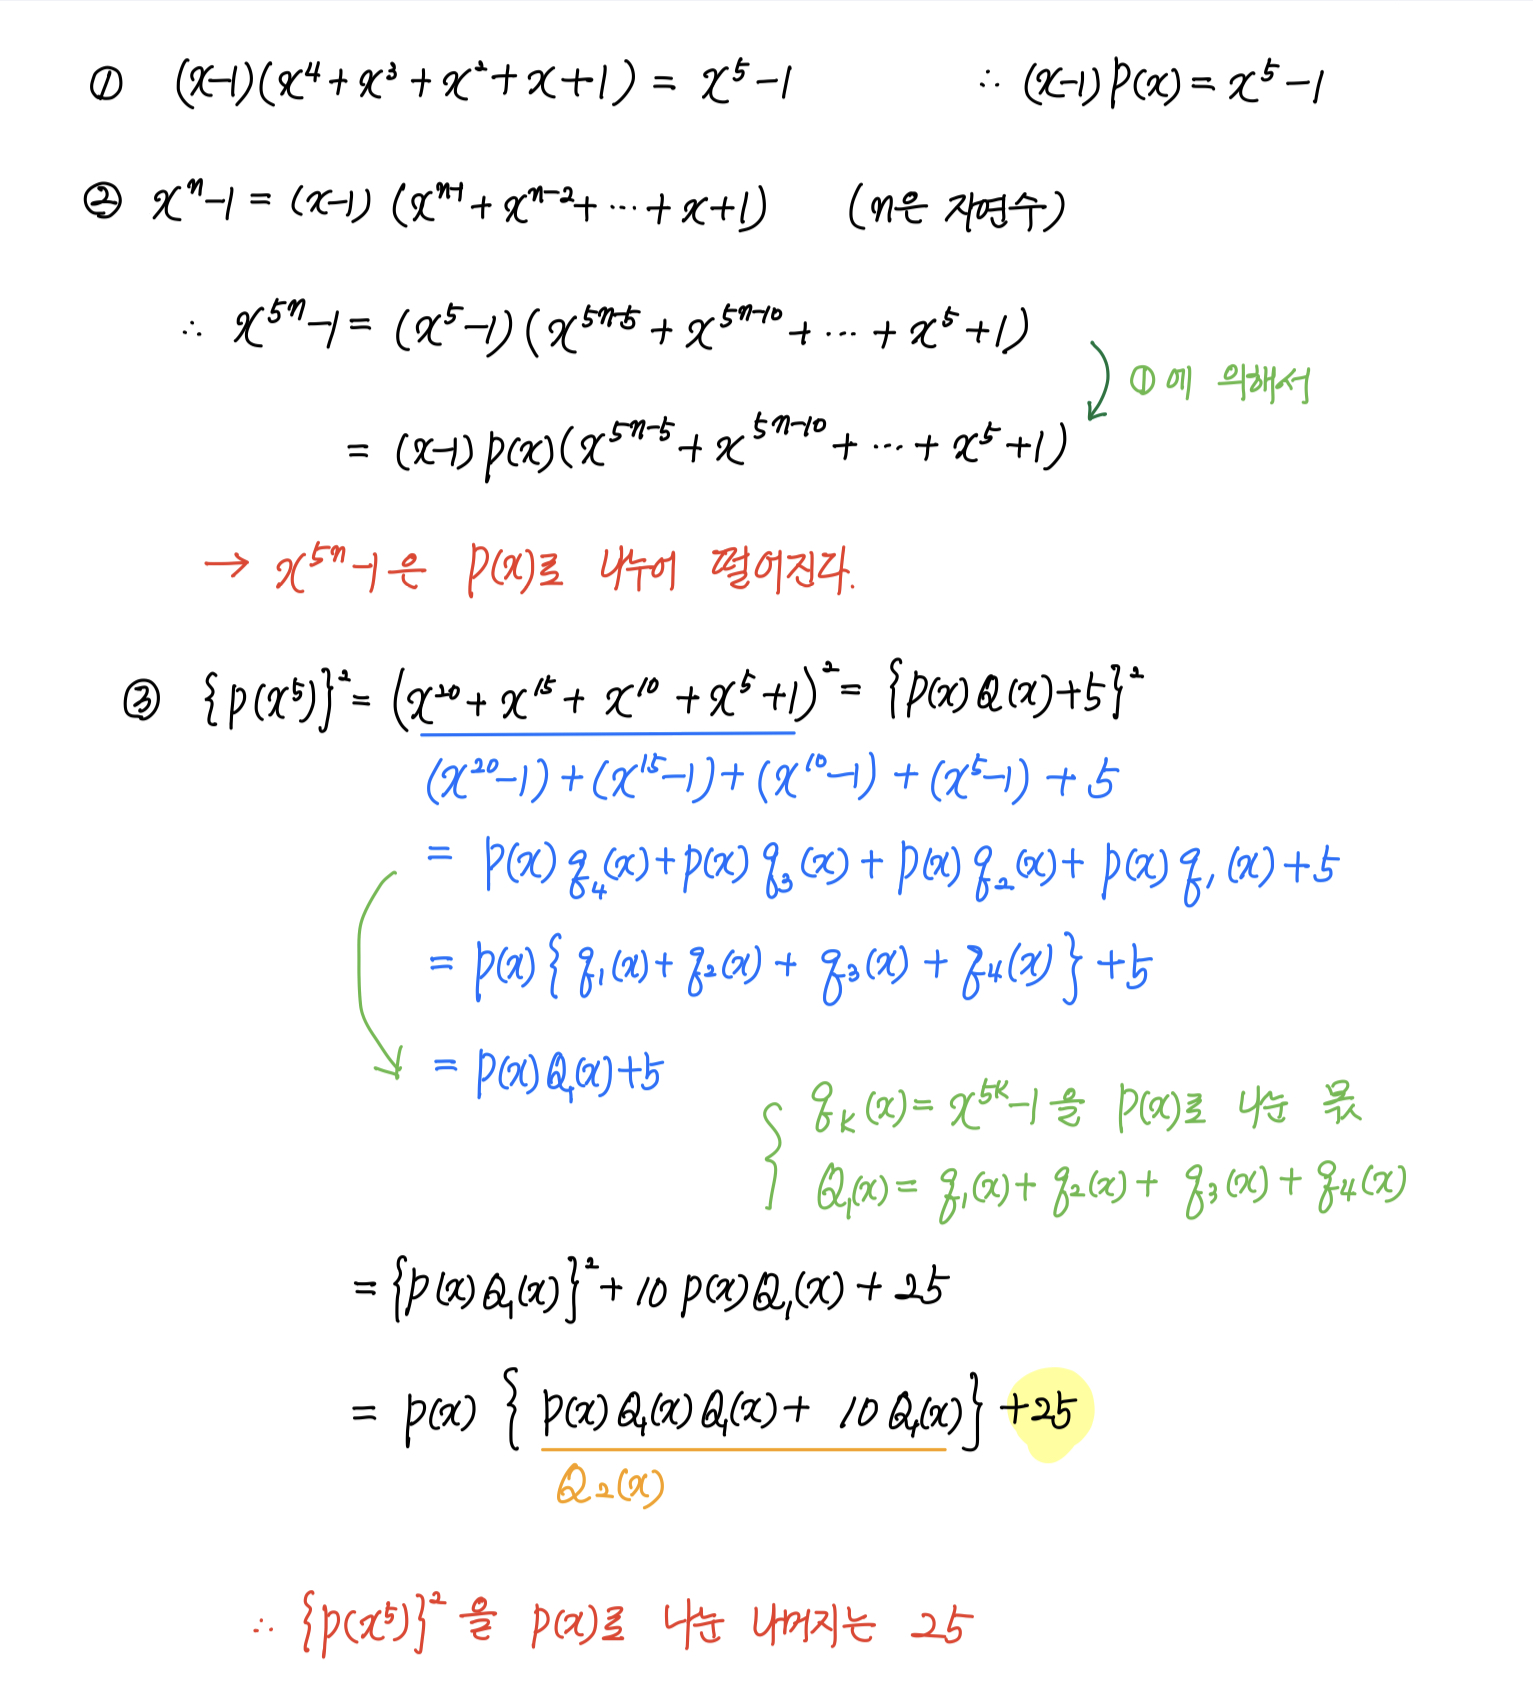 ① (x-1)(x⁴+x³+x²+x+1) = x⁵-1 ∴ (x-1)P(x) = x⁵-1
② xⁿ-1 = (x-1)(xⁿ⁻¹+xⁿ⁻²+⋯+x+1) (n은 자연수)
∴ x⁵ⁿ-1 = (x⁵-1)(x⁵ⁿ⁻⁵+x⁵ⁿ⁻¹⁰+⋯+x⁵+1)
①에 의해서
= (x-1)P(x)(x⁵ⁿ⁻⁵+x⁵ⁿ⁻¹⁰+⋯+x⁵+1)
→ x⁵ⁿ-1은 P(x)로 나누어 떨어진다.
③ {P(x⁵)}² = (x²⁰+x¹⁵+x¹⁰+x⁵+1)² = {P(x)Q(x)+5}²
(x²⁰-1)+(x¹⁵-1)+(x¹⁰-1)+(x⁵-1)+5
= P(x)q₄(x)+P(x)q₃(x)+P(x)q₂(x)+P(x)q₁(x)+5
= P(x){q₁(x)+q₂(x)+q₃(x)+q₄(x)}+5
= P(x)Q₁(x)+5
qₖ(x) = x⁵ᵏ-1을 P(x)로 나눈 몫
Q₁(x) = q₁(x)+q₂(x)+q₃(x)+q₄(x)
= {P(x)Q₁(x)}²+10P(x)Q₁(x)+25
= P(x){P(x)Q₁(x)Q₁(x)+10Q₁(x)}+25
Q₂(x)
∴ {P(x⁵)}²을 P(x)로 나눈 나머지는 25